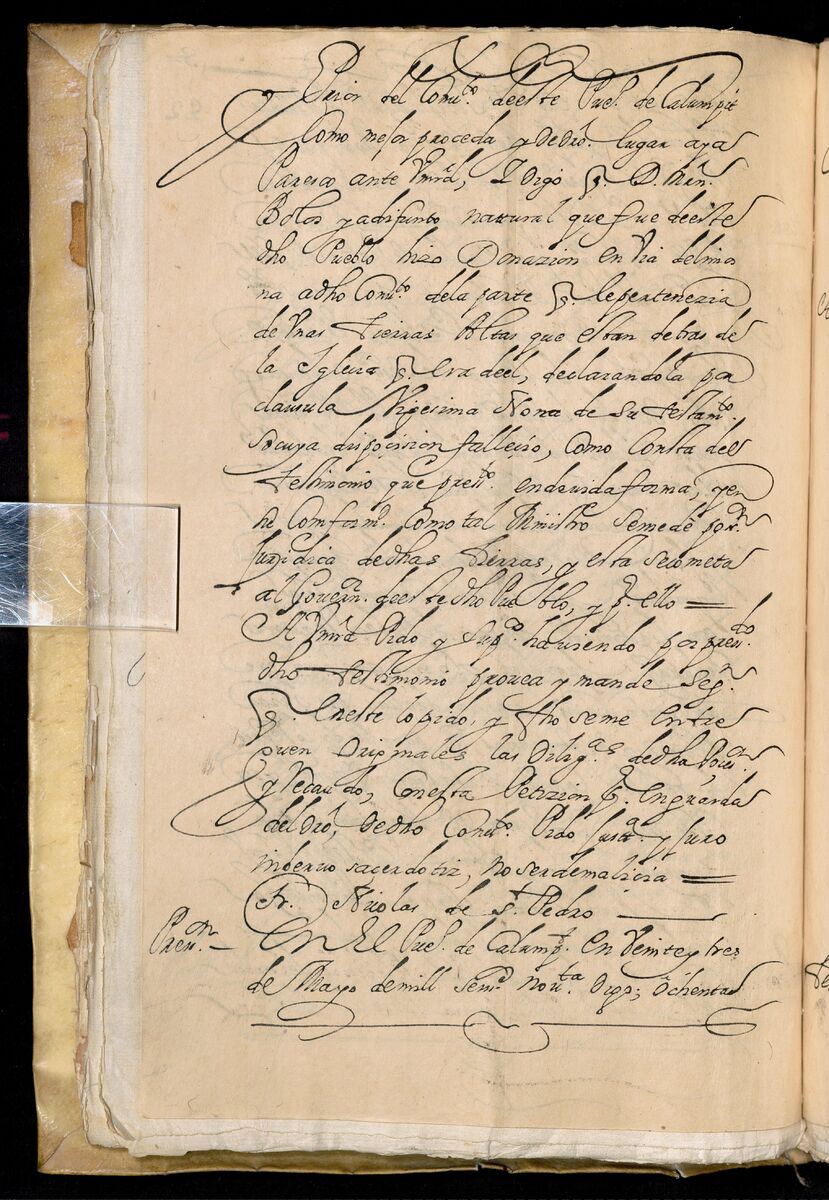 Prior del Comu.to deeste Pue.o de Calumpit
Como mejor proceda y de dro. lugar aya
Paresco ante Vmrd, I Digo q. D. Mrn.
Bolos ya difunto natural que fue deeste
dho Pueblo hizo Donazion en Via delimos
na adho Comt.to dela parte q. lepertenezia
de Vnas Tierras Altas que estan detras de
la Iglecia q. Era deel, declarandola por
clausula Vigesima Nona de Su testam.to
socuya dispocision fallecio, como Consta del
testimonio que pres.to endevida forma, y en
su Comform.d Como tal Ministro semedè poss.n
Juridica dedhas tierras, y esta secometa
al Govern.or deeste dho Pueblo, y p.a ello =
A Vmrd Pido y Sup.co haviendo por pres.do
dho testimonio provea y mande Seg.n
q. Eneste lo pido, y fho seme Entre
guen Originales las Dilig.as dedha Poss.on
y Recaudo, Conesta Petizion p.a en guarda
del dro, Dedho Comt.to Pido Just.a y Juro
inberuo sacerdotiz, no serdemalicia =
Fr. Nicolas de S.n Pedro
Presn.on En El Pue.o de Calump.t En Veinte y tres
de Mayo demill Seis.s Nov.ta Digo; Ochenta